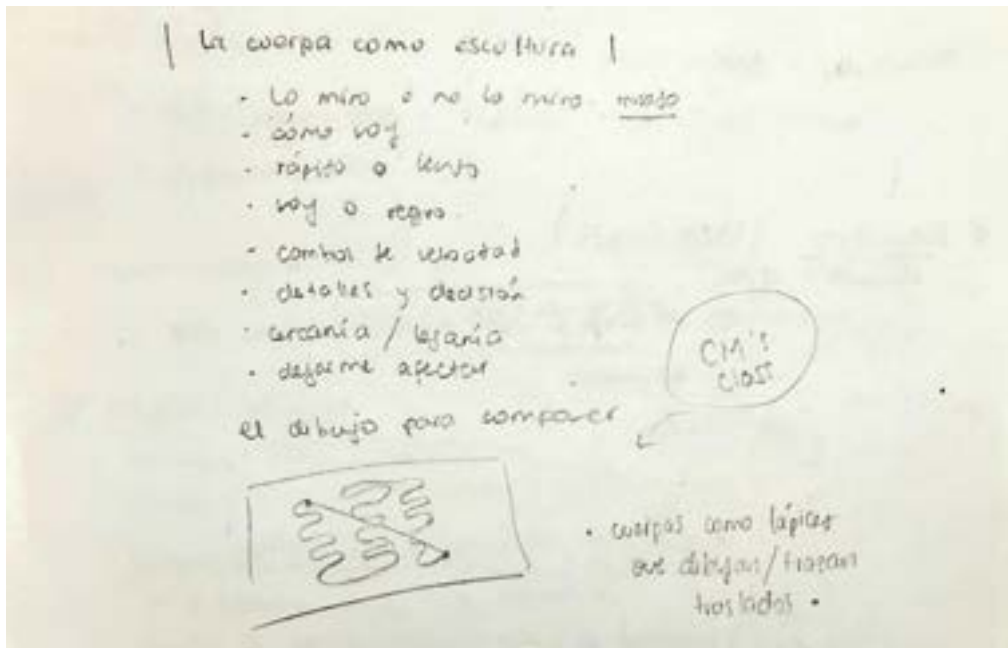 | La cuerpa como escultura |
- Lo miro o no lo miro.
- cómo voy
- rápido o lento
- voy o regreso
- cambios de velocidad
- detalles y decisión
- cercanía / lejanía
- dejarme afectar
CM's
class
el dibujo para componer
• cuerpas como lápices
que dibujan/trazan
traslados •